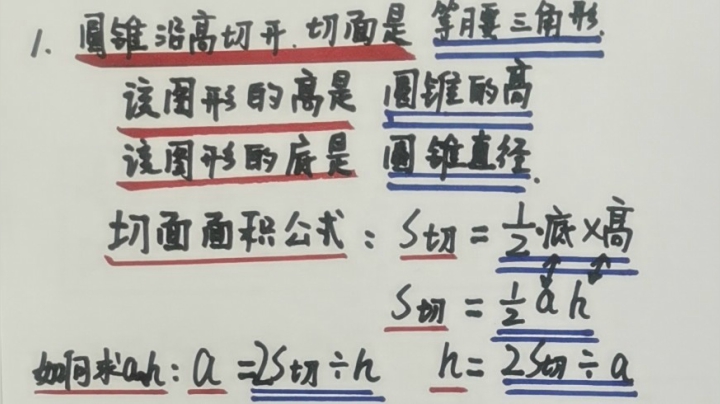 1. 圆锥沿高切开.切面是 等腰三角形.
该图形的高是 圆锥的高
该图形的底是 圆锥直径.
切面面积公式：S切 = 1/2·底×高
S切 = 1/2 a h
如何求a、h：a =2S切÷h h= 2S切÷a